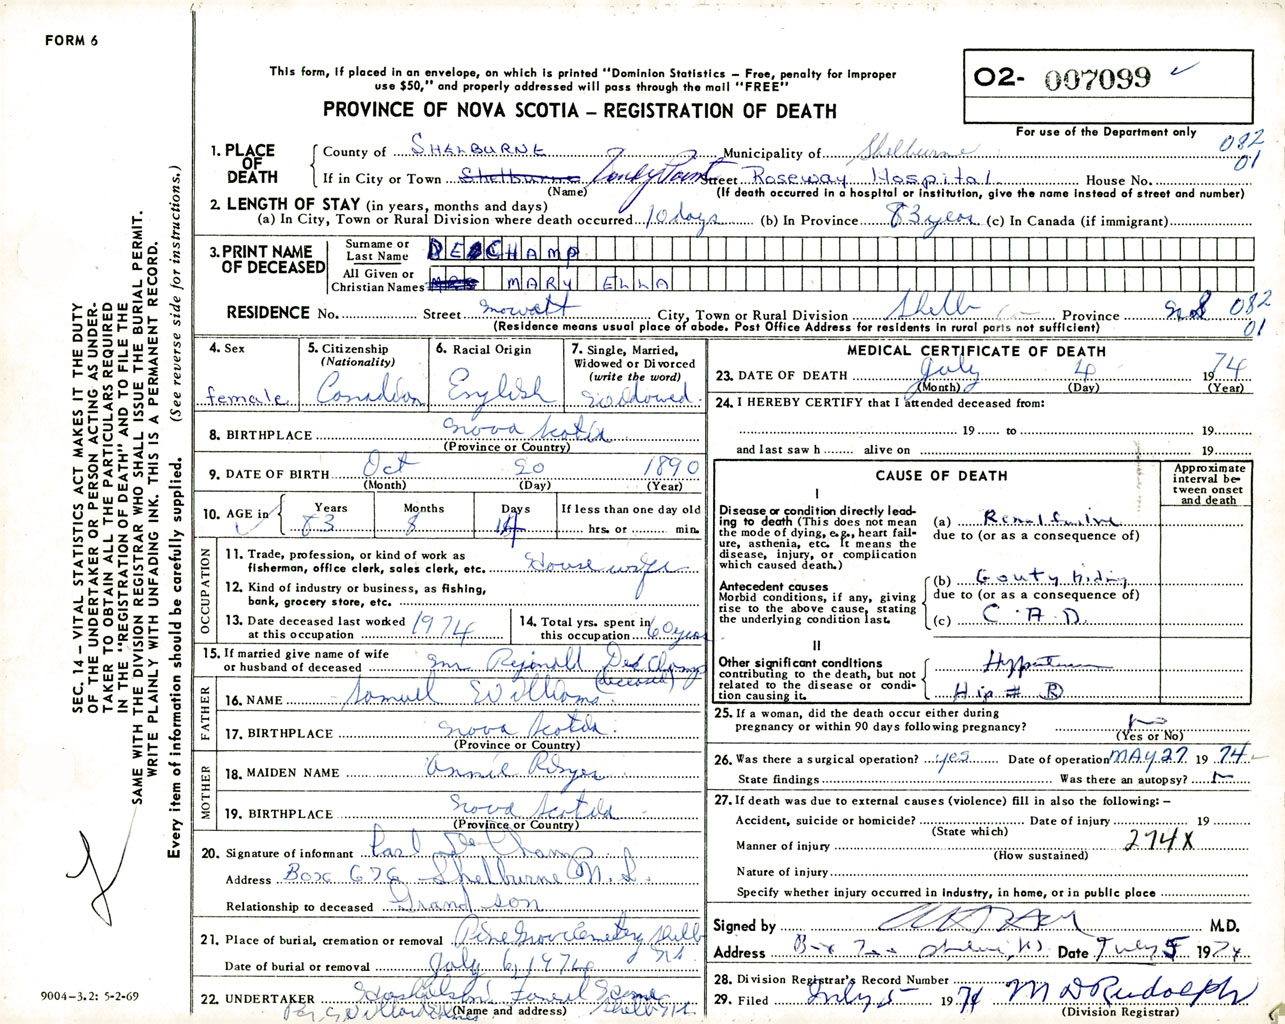 FORM 6
This form, if placed in an envelope, on which is printed "Dominion Statistics – Free, penalty for improper
use $50," and properly addressed will pass through the mail "FREE"
PROVINCE OF NOVA SCOTIA – REGISTRATION OF DEATH
O2- 007099
For use of the Department only
082
01
1. PLACE OF DEATH
County of SHELBURNE Municipality of Shelburne
If in City or Town Shelburne Sandy Point Street Roseway Hospital House No.
(Name) (If death occurred in a hospital or institution, give the name instead of street and number)
2. LENGTH OF STAY (in years, months and days)
(a) In City, Town or Rural Division where death occurred 10 days (b) In Province 83 years (c) In Canada (if immigrant)
3. PRINT NAME OF DECEASED
Surname or Last Name DESCHAMP
All Given or Christian Names MRS MARY ELLA
RESIDENCE No. Street Mowatt City, Town or Rural Division Shelb Co Province N.S 082
(Residence means usual place of abode. Post Office Address for residents in rural parts not sufficient) 01
4. Sex
female
5. Citizenship
(Nationality)
Canadian
6. Racial Origin
English
7. Single, Married,
Widowed or Divorced
(write the word)
Widowed
8. BIRTHPLACE Nova Scotia
(Province or Country)
9. DATE OF BIRTH Oct 20 1890
(Month) (Day) (Year)
10. AGE in
Years Months Days If less than one day old
83 8 14 hrs. or min.
OCCUPATION
11. Trade, profession, or kind of work as
fisherman, office clerk, sales clerk, etc. House wife
12. Kind of industry or business, as fishing,
bank, grocery store, etc.
13. Date deceased last worked
at this occupation 1974
14. Total yrs. spent in
this occupation 60 years
15. If married give name of wife
or husband of deceased Mr Reginald DesChamp
(deceased)
FATHER
16. NAME Samuel Williams
17. BIRTHPLACE Nova Scotia
(Province or Country)
MOTHER
18. MAIDEN NAME Annie
19. BIRTHPLACE Nova Scotia
(Province or Country)
20. Signature of informant Carl DeChamp
Address Box 676 Shelburne N.S.
Relationship to deceased Grand son
21. Place of burial, cremation or removal Pine Grove Cemetery Shelb
N.S
Date of burial or removal July 6, 1974
22. UNDERTAKER Funeral Home
(Name and address) Shelb N.S
MEDICAL CERTIFICATE OF DEATH
23. DATE OF DEATH July 4 1974
(Month) (Day) (Year)
24. I HEREBY CERTIFY that I attended deceased from:
19 to 19
and last saw h alive on 19
CAUSE OF DEATH
Approximate
interval be-
tween onset
and death
I
Disease or condition directly lead-
ing to death (This does not mean
the mode of dying, e.g., heart fail-
ure, asthenia, etc. It means the
disease, injury, or complication
which caused death.)
(a) Renal failure
due to (or as a consequence of)
Antecedent causes
Morbid conditions, if any, giving
rise to the above cause, stating
the underlying condition last.
(b) Gouty Kidney
due to (or as a consequence of)
(c) C.A.D.
II
Other significant conditions
contributing to the death, but not
related to the disease or condi-
tion causing it.
Hypertension
Hip # R
25. If a woman, did the death occur either during
pregnancy or within 90 days following pregnancy? no
(Yes or No)
26. Was there a surgical operation? yes Date of operation MAY 27 1974
State findings Was there an autopsy?
27. If death was due to external causes (violence) fill in also the following: –
Accident, suicide or homicide? Date of injury 19
(State which)
Manner of injury 274X
(How sustained)
Nature of injury
Specify whether injury occurred in industry, in home, or in public place
Signed by M.D.
Address Box Date July 5 1974
28. Division Registrar's Record Number
29. Filed July 5 1974 M D Rudolph
(Division Registrar)
SEC. 14 – VITAL STATISTICS ACT MAKES IT THE DUTY
OF THE UNDERTAKER OR PERSON ACTING AS UNDER-
TAKER TO OBTAIN ALL THE PARTICULARS REQUIRED
IN THE "REGISTRATION OF DEATH" AND TO FILE THE
SAME WITH THE DIVISION REGISTRAR WHO SHALL ISSUE THE BURIAL PERMIT.
WRITE PLAINLY WITH UNFADING INK. THIS IS A PERMANENT RECORD.
Every item of information should be carefully supplied. (See reverse side for instructions.)
9004-3.2: 5-2-69